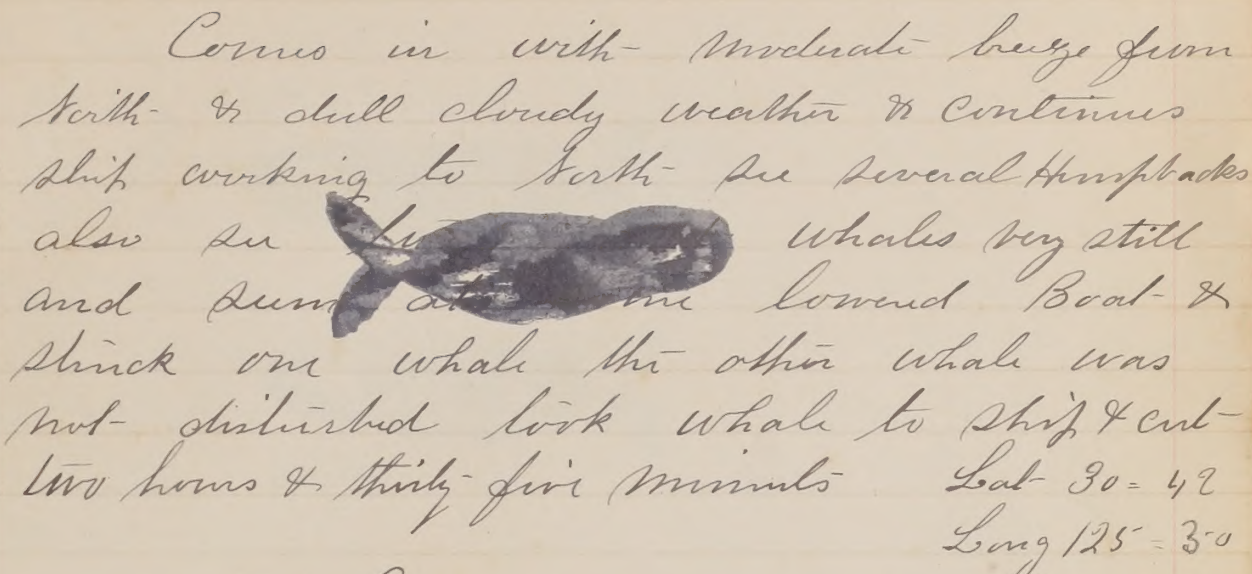 Comes in with moderate breeze from
North & dull cloudy weather & continues
ship working to North see several Humpbacks
also see whales very still
and lowered Boat &
struck one whale the other whale was
not disturbed took whale to ship & cut
two hours & thirty five minuts Lat 30 = 42
Long 125 = 30